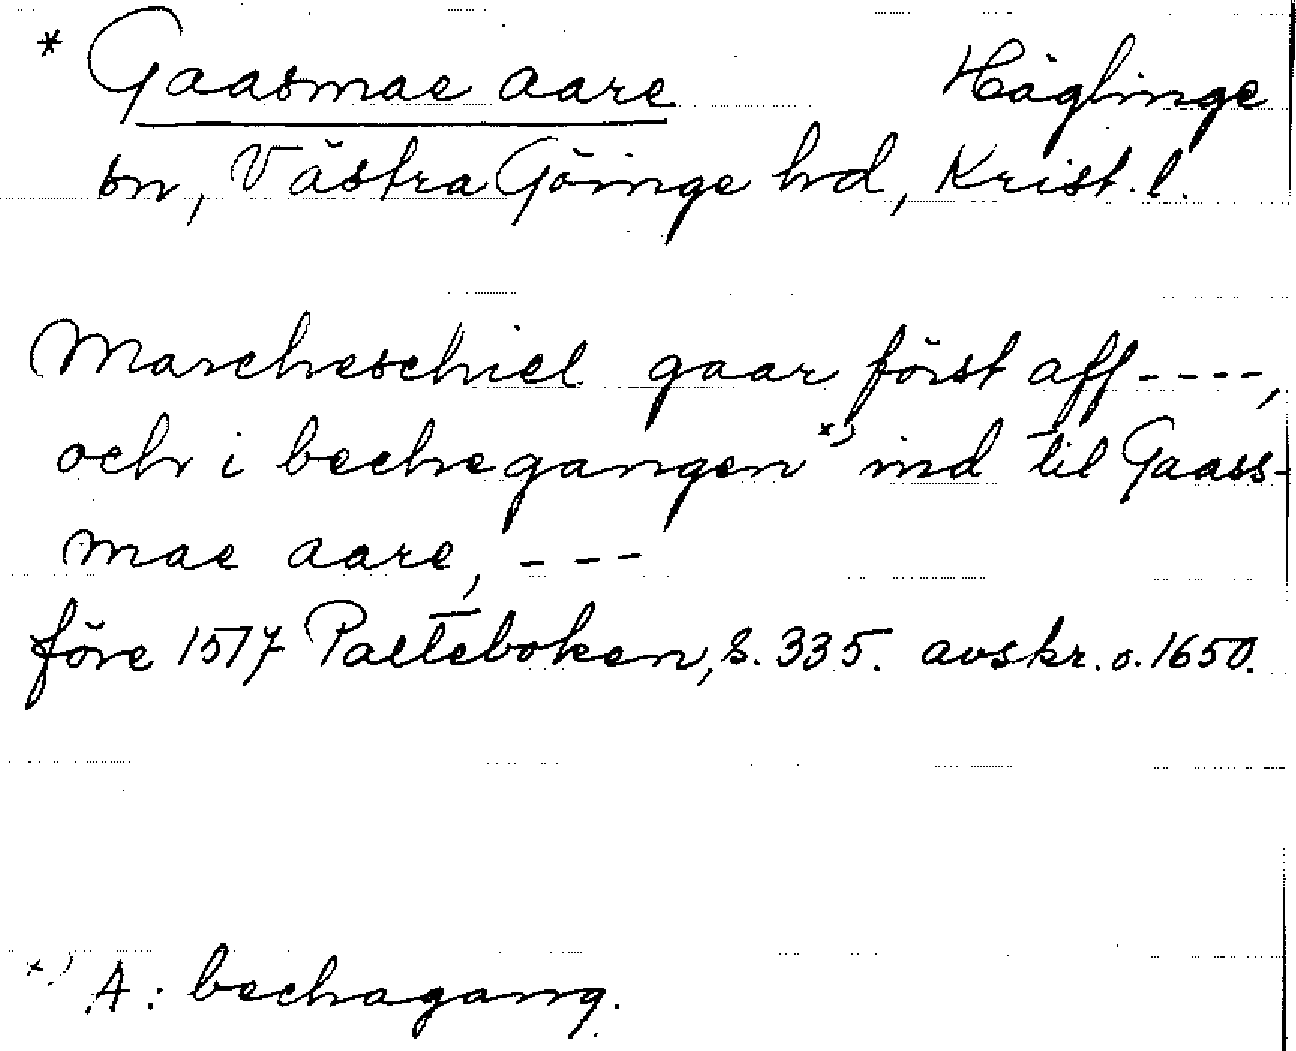 * Gaasmae aare Häglinge
sn, Västra Göinge hrd, Krist. l.
Marcheschiel gaar först aff ----,
och i bechegangen x) ind til Gaass-
mae aare, ---
före 1517 Palteboken, s. 335. avskr. o. 1650.
x) A: bechagang.